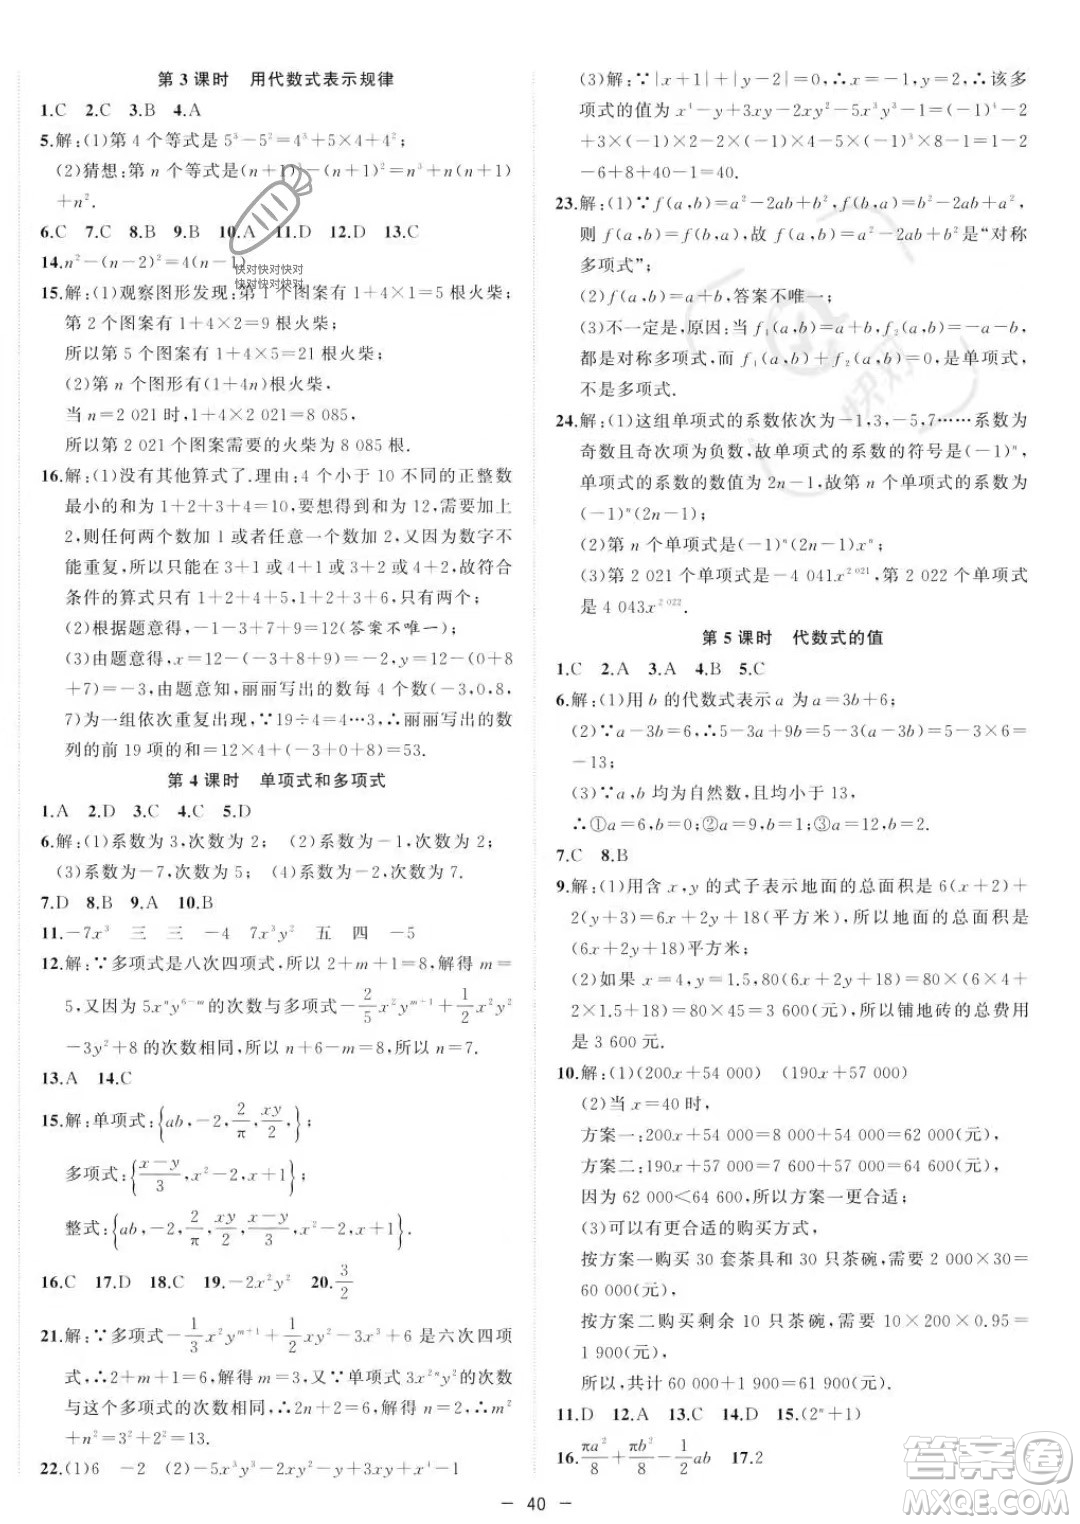 第3课时 用代数式表示规律
1.C 2.C 3.B 4.A
5.解:(1)第4个等式是5³-5²=4³+5×4+4²;
(2)猜想:第n个等式是(n+1)³-(n+1)²=n³+n(n+1)
+n².
6.C 7.C 8.B 9.B 10.A 11.D 12.D 13.C
14.n²-(n-2)²=4(n-1)
15.解:(1)观察图形发现:第1个图案有1+4×1=5根火柴;
第2个图案有1+4×2=9根火柴;
所以第5个图案有1+4×5=21根火柴;
(2)第n个图形有(1+4n)根火柴,
当n=2 021时,1+4×2 021=8 085,
所以第2 021个图案需要的火柴为8 085根.
16.解:(1)没有其他算式了.理由:4个小于10不同的正整数
最小的和为1+2+3+4=10,要想得到和为12,需要加上
2,则任何两个数加1或者任意一个数加2,又因为数字不
能重复,所以只能在3+1或4+1或4+2,故符合
条件的算式只有1+2+3+6和1+2+4+5两个;
(2)根据题意得,-1-3+7+9=12(答案不唯一);
(3)由题意得,x=12-9-0-(-3)+y=12-8-0-
(-1)=-3,由题意知,丽丽写出的数每4个数-3,0,8,
7为一组依次重复出现,∵19÷4=4…3,∴丽丽写出的数
列的前19项的和=12×4+(-3+0+8)=53.
第4课时 单项式和多项式
1.A 2.D 3.C 4.C 5.D
6.解:(1)系数为3,次数为2; (2)系数为-1,次数为2;
(3)系数为-7,次数为5; (4)系数为2,次数为7.
7.D 8.D 9.A 10.B
11.-7x³ 三 三 -4 7x³y² 五 四 -5
12.解:∵多项式是八次四项式,所以2+m+1=8,解得m=
5,又因为5xⁿy⁶⁻ᵐ的次数与多项式-2/5x²yᵐ⁺¹+1/2x²y²
-3y²+8的次数相同,所以n+6-m=8,所以n=7.
13.A 14.C
15.解:单项式:{ab,-2,2/π,xy/2,};
多项式:{(x-y)/3,x²-2,x+1};
整式:{ab,-2,2/π,xy/2,(x-y)/3,x²-2,x+1}.
16.C 17.D 18.C 19.-2x²y² 20.3/2
21.解:∵多项式-1/3x²yᵐ⁺¹+1/2xy²-3x³+6是六次四项
式,∴2+m+1=6,解得m=3,又∵单项式3x²ⁿy²的次数
与这个多项式的次数相同,∴2n+2=6,解得n=2,∴m²
+n²=3²+2²=13.
22.(1)6 -2 (2)-5x³y³-2xy²+3xy+x⁴-1
(3)解:∵|x+1|+|y-2|=0,∴x=-1,y=2,∴该多
项式的值为x⁴-1+3xy-2xy²-5x³y³=(-1)⁴-1
+3×(-1)×2-2×(-1)×4-5×(-1)³×8=1-1
-6+8+40-1=40.
23.解:(1)∵f(a,b)=a²-2ab+b²,f(b,a)=b²-2ab+a²,
则f(a,b)=f(b,a),故f(a,b)=a²-2ab+b²是“对称
多项式”;
(2)f(a,b)=a+b,答案不唯一;
(3)不一定是,原因:当f₁(a,b)=a+b,f₂(a,b)=-a-b,
都是对称多项式,而f₁(a,b)+f₂(a,b)=0,是单项式,
不是多项式.
24.解:(1)这组单项式的系数依次为-1,3,-5,7……系数为
奇数且奇次项为负数,故单项式的系数的符号是(-1)ⁿ,
单项式的系数的数值为2n-1,故第n个单项式的系数为
(-1)ⁿ(2n-1);
(2)第n个单项式是(-1)ⁿ(2n-1)xⁿ;
(3)第2 021个单项式是-4 041x²⁰²¹,第2 022个单项式
是4 043x²⁰²².
第5课时 代数式的值
1.C 2.A 3.A 4.B 5.C
6.解:(1)用b的代数式表示a为a=3b+6;
(2)∵a-3b=6,∴5-3a+9b=5-3(a-3b)=5-3×6=
-13;
(3)∵a,b均为自然数,且均小于13,
∴①a=6,b=0;②a=9,b=1;③a=12,b=2.
7.C 8.B
9.解:(1)用含x,y的式子表示地面的总面积是6(x+2)+
2(y+3)=6x+2y+18(平方米),所以地面的总面积是
(6x+2y+18)平方米;
(2)如果x=4,y=1.5,80(6x+2y+18)=80×(6×4+
2×1.5+18)=80×45=3 600(元),所以铺地砖的总费用
是3 600元.
10.解:(1)(200x+54 000) (190x+57 000)
(2)当x=40时,
方案一:200x+54 000=8 000+54 000=62 000(元),
方案二:190x+57 000=7 600+57 000=64 600(元),
因为62 000<64 600,所以方案一更合适;
(3)可以有更合适的购买方式,
按方案一购买30套茶具和30只茶碗,需要2 000×30=
60 000(元),
按方案二购买剩余10只茶碗,需要10×200×0.95=
1 900(元).
所以,共计60 000+1 900=61 900(元).
11.D 12.A 13.C 14.D 15.(2ⁿ+1)
16.πa²/8+πb²/8-1/2ab 17.2
- 40 -
快对快对快对
快对快对快对
快对
答案圈
MXQE.COM